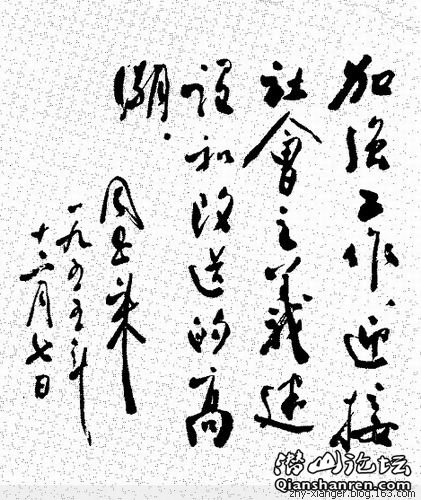 加强工作、迎接
社會主義建
設和改造的高
潮.
周恩来
一九五五年
十二月七日
潜山论坛
Qianshanren.com
zhy-xianger.blog.163.com